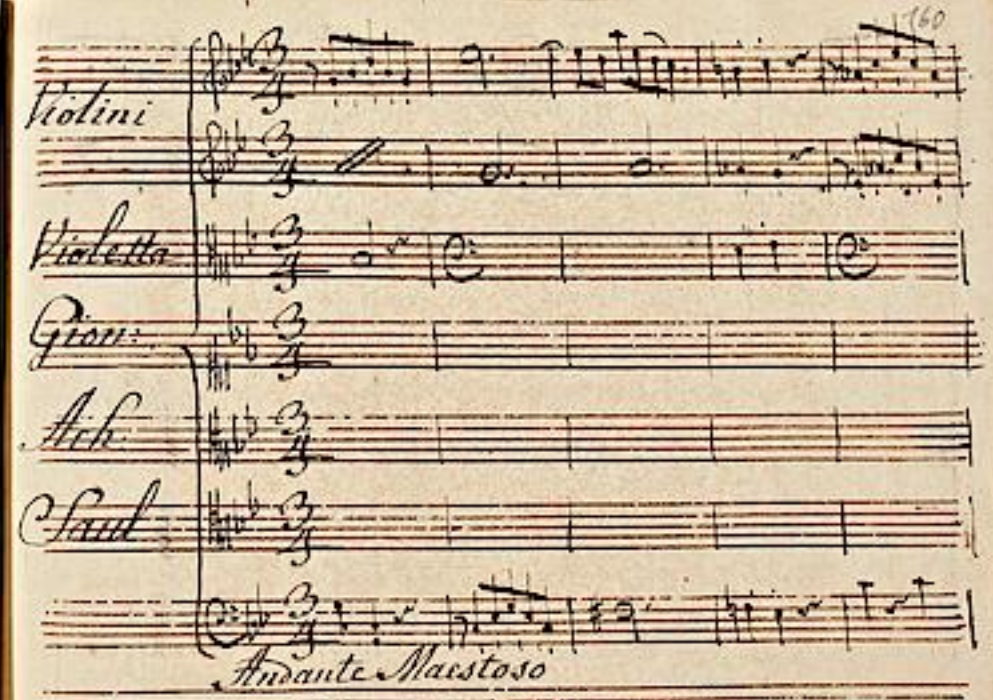 160
Violini
Violetta
Gion:
Ach.
Saul
Andante Maestoso